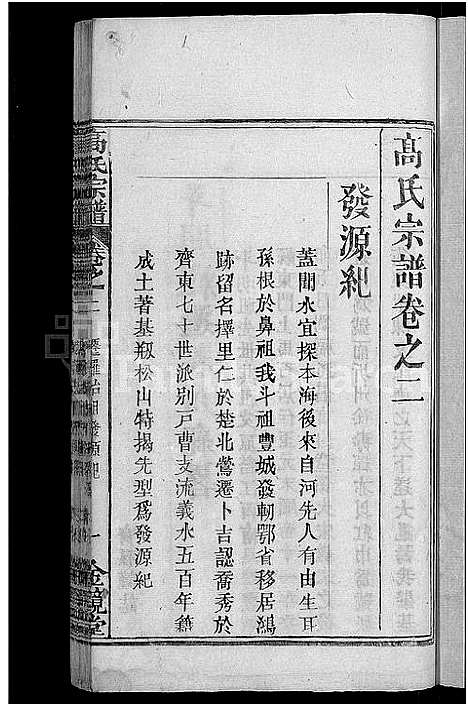 高氏宗譜卷之二
發源紀
蓋聞水宜探本海後來自河先人有由生耳
孫根於鼻祖我斗祖豐城發軔鄂省移居鴻
跡留名擇里仁於楚北鶯遷卜吉認喬秀於
齊東七十世派別戸曹支流義水五百年籍
成土著基級松山特揭先型爲發源紀
高氏宗譜
卷之二
發源紀
一
金鏡堂